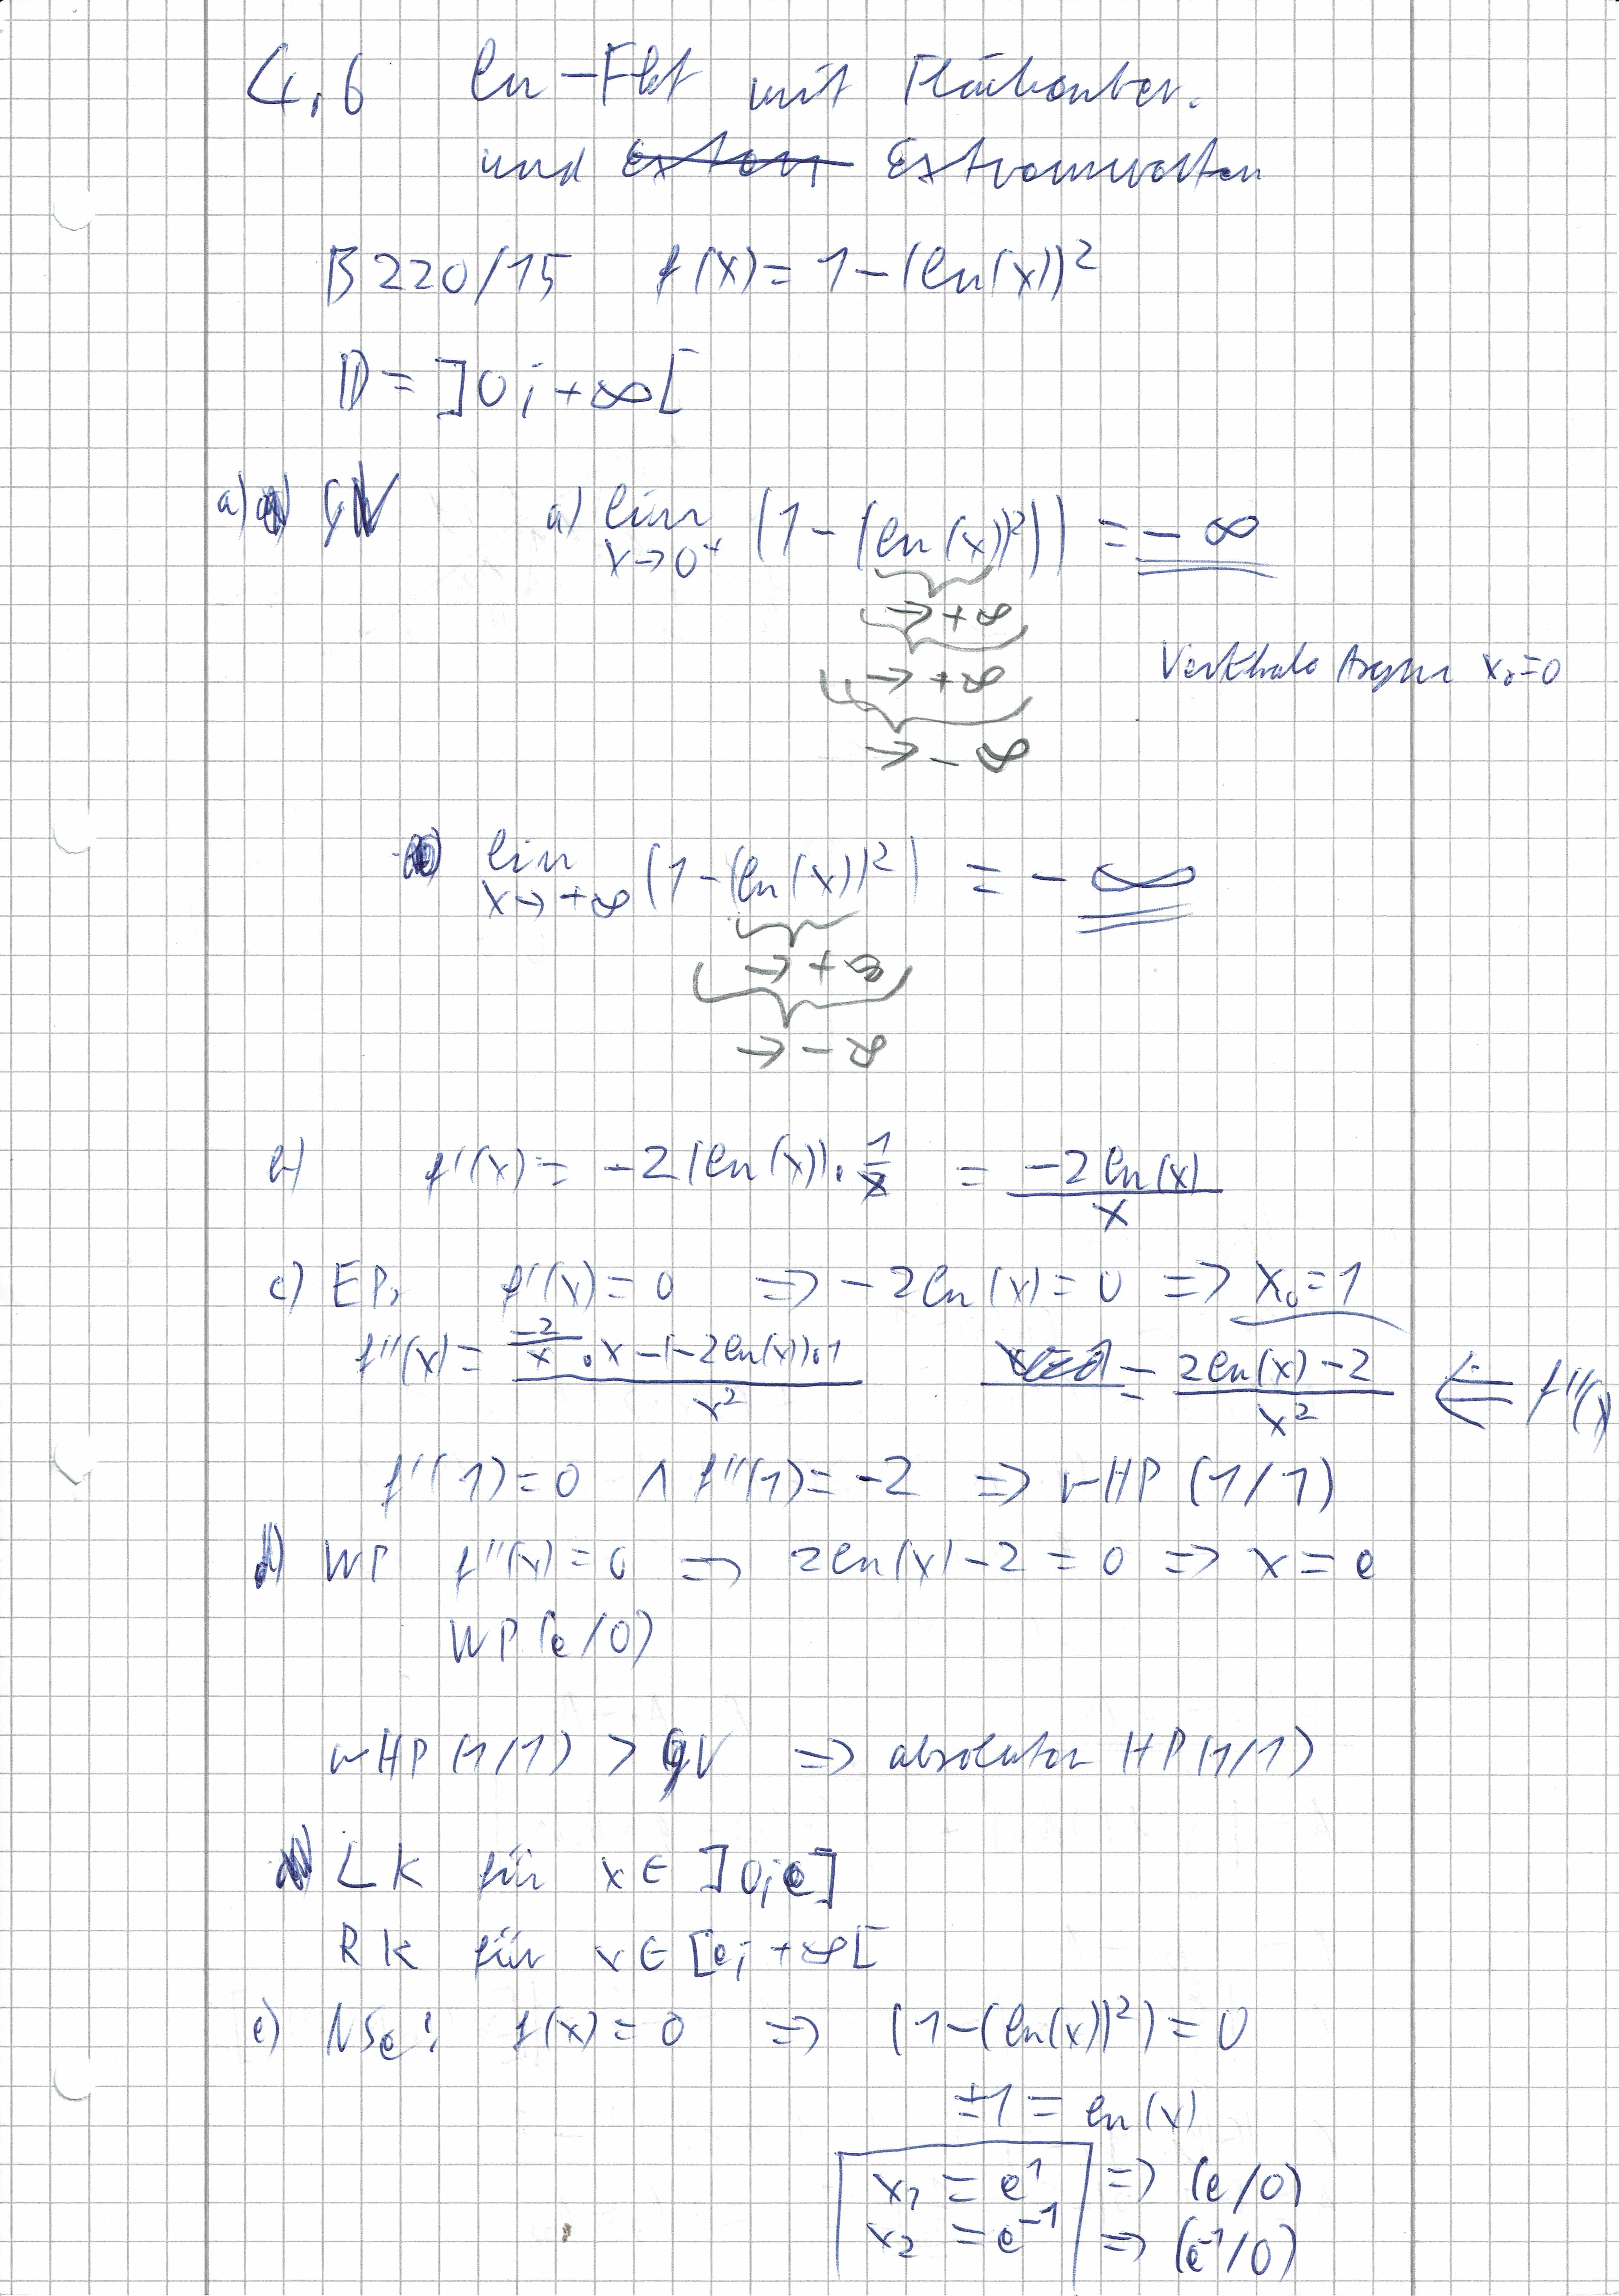 4.6 ln-Fkt mit Flächenber.
und Extremwerten
B 220/15 f(x) = 1-(ln(x))²
D = ]0; +∞[
a) GV a) lim x→0⁺ (1-(ln(x))²)) = -∞
→+∞
→+∞
Vertikale Asym x₀=0
→-∞
lim x→+∞ (1-(ln(x))²) = -∞
→+∞
→-∞
b) f'(x) = -2(ln(x))·1/x = -2ln(x)/x
c) EP, f'(x) = 0 => -2ln(x) = 0 => x₀ = 1
f''(x) = (-2/x · x - (-2ln(x))·1)/x² = (2ln(x) - 2)/x² <= f''(x)
f'(1) = 0 ∧ f''(1) = -2 => rHP (1/1)
d) WP f''(x) = 0 => 2ln(x) - 2 = 0 => x = e
WP(e/0)
rHP (1/1) > GV => absoluter HP(1/1)
LK für x ∈ ]0;e]
RK für x ∈ [e; +∞[
e) NSe: f(x) = 0 => (1-(ln(x))²) = 0
±1 = ln(x)
x₁ = e¹ => (e/0)
x₂ = e⁻¹ => (e⁻¹/0)